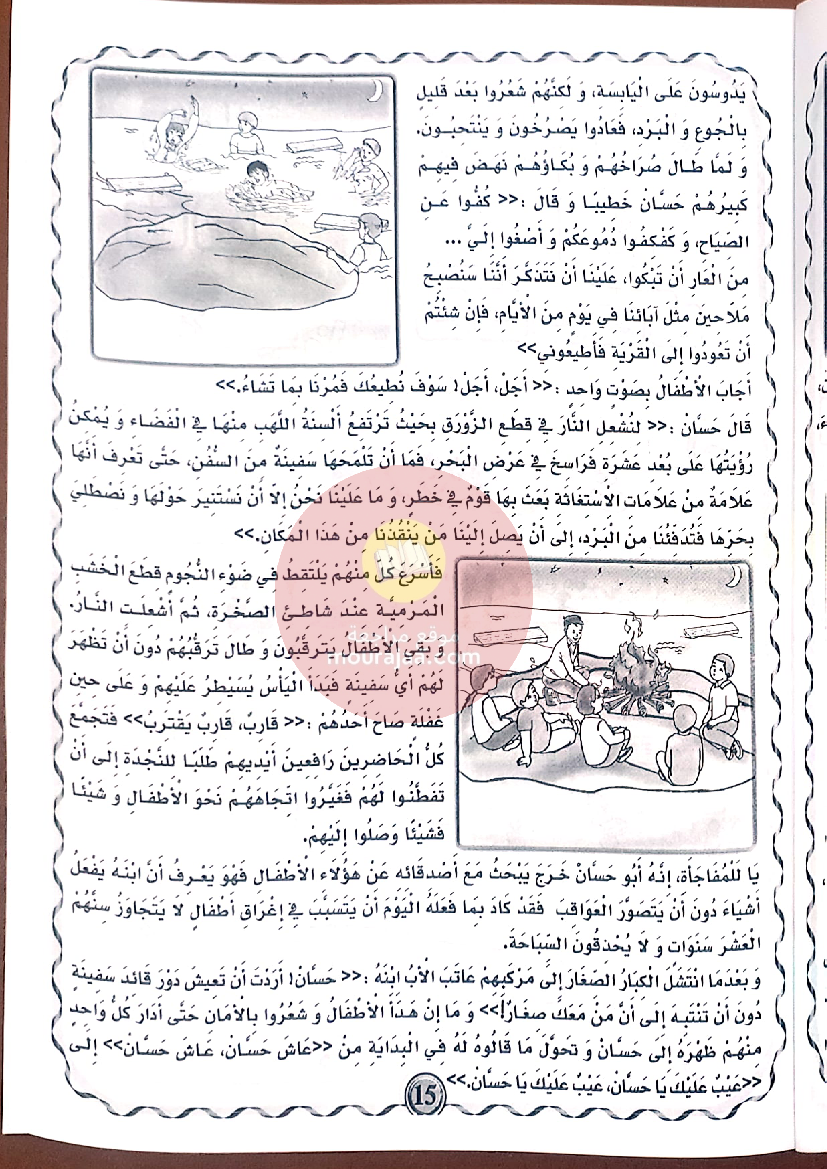 يَدُوسُونَ عَلَى الْيَابِسَةِ، وَ لَكِنَّهُمْ شَعُرُوا بَعْدَ قَلِيلٍ
بِالْجُوعِ وَ الْبَرْدِ، فَعَادُوا يَصْرُخُونَ وَ يَنْتَحِبُونَ.
وَ لَمَّا طَالَ صُرَاخُهُمْ وَ بُكَاؤُهُمْ نَهَضَ فِيهِمْ
كَبِيرُهُمْ حَسَّان خَطِيبًا وَ قَالَ :<< كُفُّوا عَنِ
الصِّيَاحِ، وَ كَفْكِفُوا دُمُوعَكُمْ وَ أَصْغُوا إِلَيَّ ...
مِنَ الْعَارِ أَنْ تَبْكُوا، عَلَيْنَا أَنْ نَتَذَكَّرَ أَنَّنَا سَنُصْبِحُ
مَلَّاحِينَ مِثْلَ آبَائِنَا فِي يَوْمٍ مِنَ الْأَيَّامِ، فَإِنْ شِئْتُمْ
أَنْ تَعُودُوا إِلَى الْقَرْيَةِ فَأَطِيعُونِي>>
أَجَابَ الْأَطْفَالُ بِصَوْتٍ وَاحِدٍ :<< أَجَلْ، أَجَلْ! سَوْفَ نُطِيعُكَ فَمُرْنَا بِمَا تَشَاءُ.>>
قَالَ حَسَّانُ :<< لِنُشْعِلِ النَّارَ فِي قِطَعِ الزَّوْرَقِ بِحَيْثُ تَرْتَفِعُ أَلْسِنَةُ اللَّهَبِ مِنْهَا فِي الْفَضَاءِ وَ يُمْكِنُ
رُؤْيَتُهَا عَلَى بُعْدِ عَشَرَةِ فَرَاسِخَ فِي عَرْضِ الْبَحْرِ، فَمَا أَنْ تَلْمَحَهَا سَفِينَةٌ مِنَ السُّفُنِ، حَتَّى تَعْرِفَ أَنَّهَا
عَلَامَةٌ مِنْ عَلَامَاتِ الْاسْتِغَاثَةِ بَعَثَ بِهَا قَوْمٌ فِي خَطَرٍ، وَ مَا عَلَيْنَا نَحْنُ إِلَّا أَنْ نَسْتَنِيرَ حَوْلَهَا وَ نَصْطَلِيَ
بِحَرِّهَا فَتُدَفِّئُنَا مِنَ الْبَرْدِ، إِلَى أَنْ يَصِلَ إِلَيْنَا مَنْ يُنْقِذُنَا مِنْ هَذَا الْمَكَانِ.>>
فَأَسْرَعَ كُلٌّ مِنْهُمْ يَلْتَقِطُ فِي ضَوْءِ النُّجُومِ قِطَعَ الْخَشَبِ
الْمَرْمِيَّةِ عِنْدَ شَاطِئِ الصَّخْرَةِ، ثُمَّ أُشْعِلَتِ النَّارُ.
وَ بَقِيَ الْأَطْفَالُ يَتَرَقَّبُونَ وَ طَالَ تَرَقُّبُهُمْ دُونَ أَنْ تَظْهَرَ
لَهُمْ أَيُّ سَفِينَةٍ فَبَدَأَ الْيَأْسُ يُسَيْطِرُ عَلَيْهِمْ وَ عَلَى حِينِ
غَفْلَةٍ صَاحَ أَحَدُهُمْ :<< قَارِبٌ، قَارِبٌ يَقْتَرِبُ>> فَتَجَمَّعَ
كُلُّ الْحَاضِرِينَ رَافِعِينَ أَيْدِيهِمْ طَلَبًا لِلنَّجْدَةِ إِلَى أَنْ
تَفَطَّنُوا لَهُمْ فَغَيَّرُوا اتِّجَاهَهُمْ نَحْوَ الْأَطْفَالِ وَ شَيْئًا
فَشَيْئًا وَصَلُوا إِلَيْهِمْ.
يَا لَلْمُفَاجَأَةِ، إِنَّهُ أَبُو حَسَّانَ خَرَجَ يَبْحَثُ مَعَ أَصْدِقَائِهِ عَنْ هَؤُلَاءِ الْأَطْفَالِ فَهُوَ يَعْرِفُ أَنَّ ابْنَهُ يَفْعَلُ
أَشْيَاءَ دُونَ أَنْ يَتَصَوَّرَ الْعَوَاقِبَ فَقَدْ كَادَ بِمَا فَعَلَهُ الْيَوْمَ أَنْ يَتَسَبَّبَ فِي إِغْرَاقِ أَطْفَالٍ لَا يَتَجَاوَزُ سِنُّهُمْ
الْعَشْرَ سَنَوَاتٍ وَ لَا يُحْذِقُونَ السِّبَاحَةَ.
وَ بَعْدَمَا انْتَشَلَ الْكِبَارُ الصِّغَارَ إِلَى مَرْكَبِهِمْ عَاتَبَ الْأَبُ ابْنَهُ :<< حَسَّانُ! أَرَدْتَ أَنْ تَعِيشَ دَوْرَ قَائِدِ سَفِينَةٍ
دُونَ أَنْ تَنْتَبِهَ إِلَى أَنَّ مَنْ مَعَكَ صِغَارٌ!>> وَ مَا إِنْ هَدَأَ الْأَطْفَالُ وَ شَعُرُوا بِالْأَمَانِ حَتَّى أَدَارَ كُلُّ وَاحِدٍ
مِنْهُمْ ظَهْرَهُ إِلَى حَسَّانَ وَ تَحَوَّلَ مَا قَالُوهُ لَهُ فِي الْبِدَايَةِ مِنْ <<عَاشَ حَسَّانُ، عَاشَ حَسَّانُ>> إِلَى
<<عَيْبٌ عَلَيْكَ يَا حَسَّانُ، عَيْبٌ عَلَيْكَ يَا حَسَّانُ.>>
15
موقع مراجعة
mourajaa.com